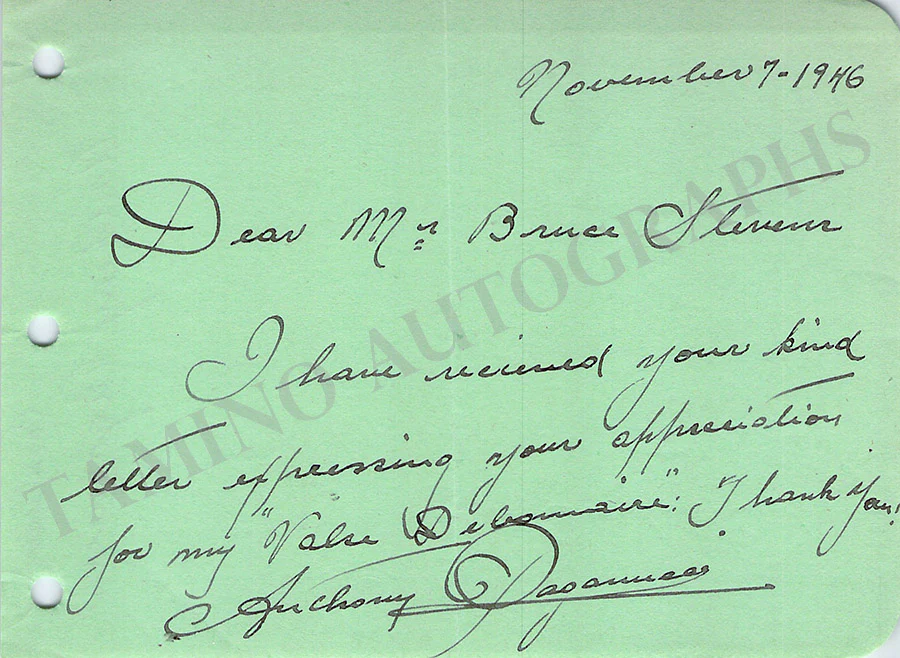 November 7-1946
Dear Mr Bruce Stevens
I have recieved your kind
letter expressing your appreciation
for my "Valse Debonnaire". Thank you!
Anthony Paganucci
TAMINO AUTOGRAPHS